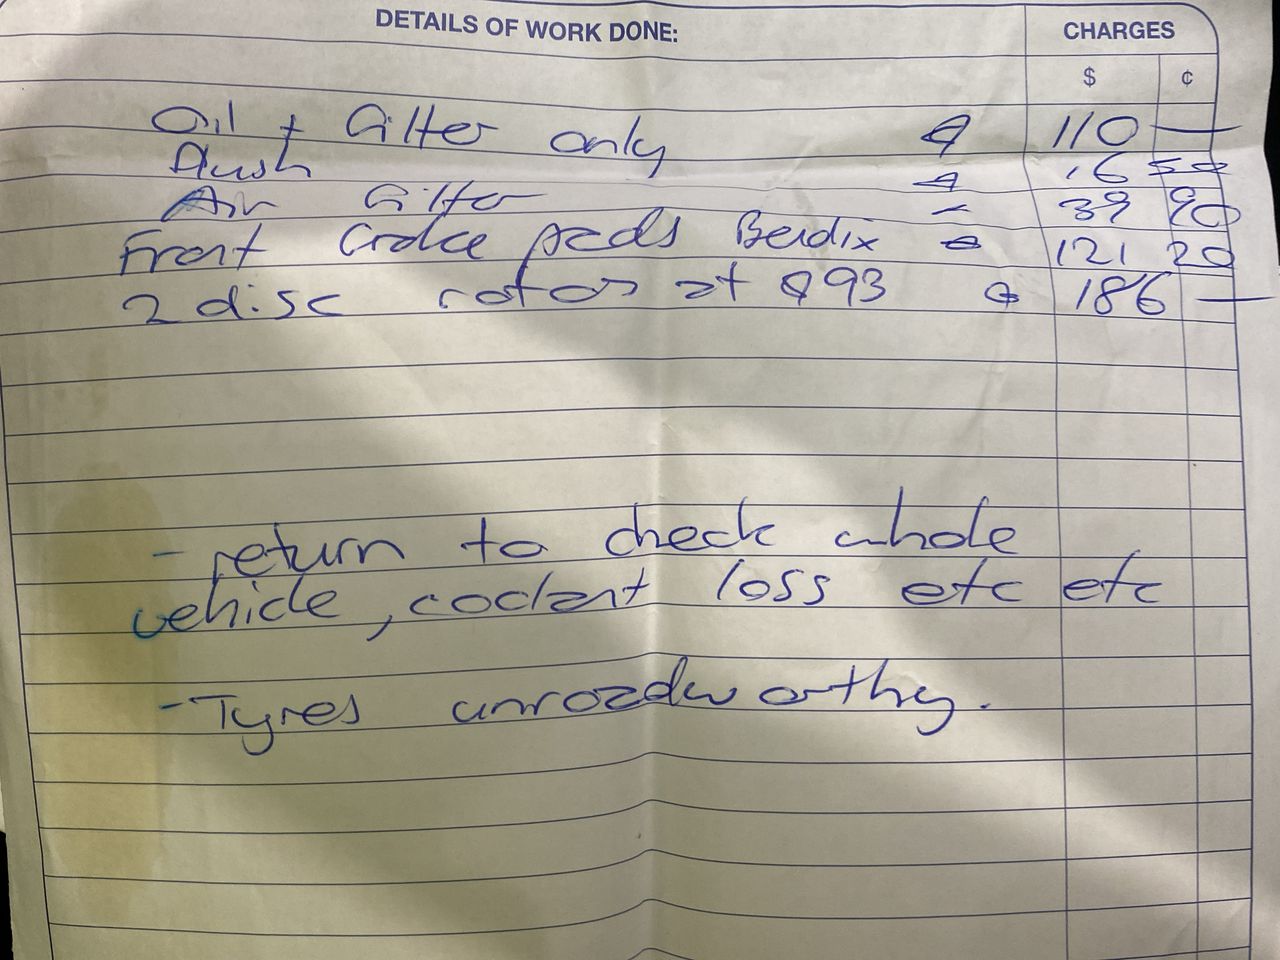 DETAILS OF WORK DONE: CHARGES
$ ¢
Oil + filter only 110 —
Flush 16 50
Air filter - 39 90
Front brake pads Bendix 121 20
2 disc rotors at $93 186 —
- return to check whole
vehicle, coolant loss etc etc
- Tyres unroadworthy.